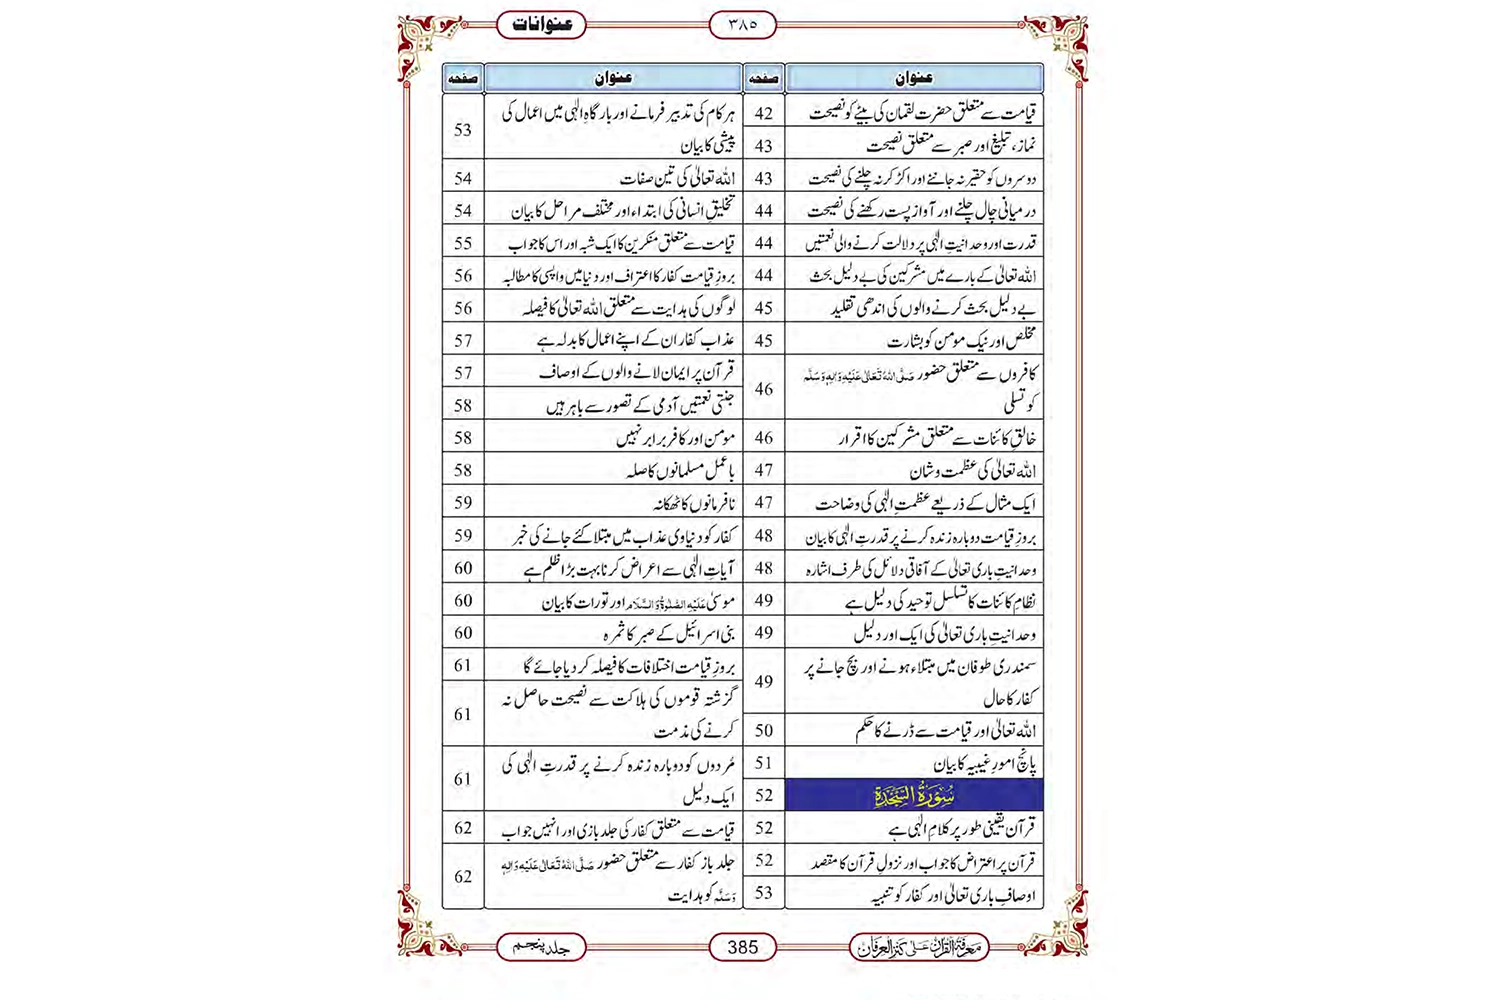 عنوانات
٣٨٥
عنوان صفحہ
قیامت سے متعلق حضرت لقمان کی بیٹے کو نصیحت 42
نماز، تبلیغ اور صبر سے متعلق نصیحت 43
دوسروں کو حقیر نہ جاننے اور اکڑ کر نہ چلنے کی نصیحت 43
درمیانی چال چلنے اور آواز پست رکھنے کی نصیحت 44
قدرت اور وحدانیتِ الٰہی پر دلالت کرنے والی نعمتیں 44
اللہ تعالیٰ کے بارے میں مشرکین کی بے دلیل بحث 44
بے دلیل بحث کرنے والوں کی اندھی تقلید 45
مخلص اور نیک مومن کو بشارت 45
کافروں سے متعلق حضور صَلَّی اللہُ تَعَالٰی عَلَیْہِ وَاٰلِہٖ وَسَلَّمَ
کو تسلی 46
خالقِ کائنات سے متعلق مشرکین کا اقرار 46
اللہ تعالیٰ کی عظمت و شان 47
ایک مثال کے ذریعے عظمتِ الٰہی کی وضاحت 47
بروزِ قیامت دوبارہ زندہ کرنے پر قدرتِ الٰہی کا بیان 48
وحدانیتِ باری تعالیٰ کے آفاقی دلائل کی طرف اشارہ 48
نظامِ کائنات کا تسلسل توحید کی دلیل ہے 49
وحدانیتِ باری تعالیٰ کی ایک اور دلیل 49
سمندری طوفان میں مبتلاء ہونے اور بچ جانے پر
کفار کا حال 49
اللہ تعالیٰ اور قیامت سے ڈرنے کا حکم 50
پانچ امورِ غیبیہ کا بیان 51
سُوْرَۃُ السَّجْدَۃِ 52
قرآن یقینی طور پر کلامِ الٰہی ہے 52
قرآن پر اعتراض کا جواب اور نزولِ قرآن کا مقصد 52
اوصافِ باری تعالیٰ اور کفار کو تنبیہ 53
عنوان صفحہ
ہر کام کی تدبیر فرمانے اور بارگاہِ الٰہی میں اعمال کی
پیشی کا بیان 53
اللہ تعالیٰ کی تین صفات 54
تخلیقِ انسانی کی ابتداء اور مختلف مراحل کا بیان 54
قیامت سے متعلق منکرین کا ایک شبہ اور اس کا جواب 55
بروزِ قیامت کفار کا اعتراف اور دنیا میں واپسی کا مطالبہ 56
لوگوں کی ہدایت سے متعلق اللہ تعالیٰ کا فیصلہ 56
عذاب کفار ان کے اپنے اعمال کا بدلہ ہے 57
قرآن پر ایمان لانے والوں کے اوصاف 57
جنتی نعمتیں آدمی کے تصور سے باہر ہیں 58
مومن اور کافر برابر نہیں 58
باعمل مسلمانوں کا صلہ 58
نافرمانوں کا ٹھکانہ 59
کفار کو دنیاوی عذاب میں مبتلا کئے جانے کی خبر 59
آیاتِ الٰہی سے اعراض کرنا بہت بڑا ظلم ہے 60
موسیٰ عَلَیْہِ الصَّلٰوۃُ وَالسَّلَام اور تورات کا بیان 60
بنی اسرائیل کے صبر کا ثمرہ 60
بروزِ قیامت اختلافات کا فیصلہ کر دیا جائے گا 61
گزشتہ قوموں کی ہلاکت سے نصیحت حاصل نہ
کرنے کی مذمت 61
مُردوں کو دوبارہ زندہ کرنے پر قدرتِ الٰہی کی
ایک دلیل 61
قیامت سے متعلق کفار کی جلد بازی اور انہیں جواب 62
جلد باز کفار سے متعلق حضور صَلَّی اللہُ تَعَالٰی عَلَیْہِ وَاٰلِہٖ
وَسَلَّمَ کو ہدایت 62
معرفۃ القرآن علی کنز العرفان
385
جلد پنجم